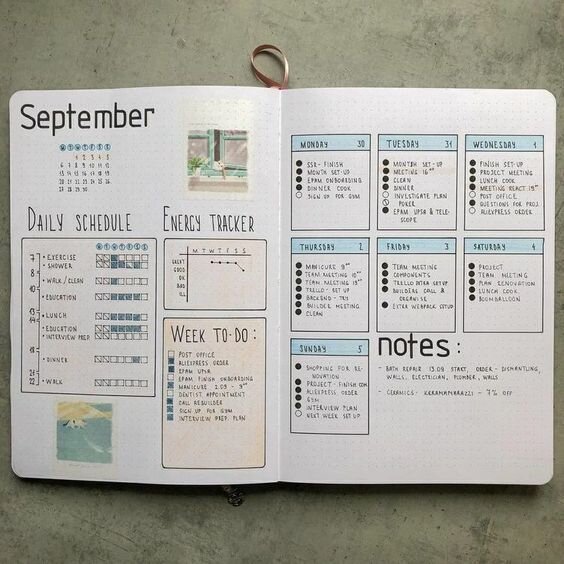 September
M T W T F S S
1 2 3 4 5
6 7 8 9 10 11 12
13 14 15 16 17 18 19
20 21 22 23 24 25 26
27 28 29 30
DAILY SCHEDULE
M T W T F S S
7 • EXERCISE
• SHOWER
8
• WALK / CLEAN
10
• EDUCATION
13 • LUNCH
14
• EDUCATION
• INTERVIEW PREP.
19
• DINNER
21
22 • WALK
ENERGY TRACKER
M T W T F S S
GREAT
GOOD
OK
BAD
ILL
WEEK TO-DO:
POST OFFICE
ALIEXPRESS ORDER
EPAM UPSA
EPAM FINISH ONBOARDING
MANICURE 2.09 - 9⁰⁰
DENTIST APPOINTMENT
CALL REBUILDER
SIGN UP FOR GYM
INTERVIEW PREP. PLAN
MONDAY 30
SSR - FINISH
MONTH SET-UP
EPAM ONBOARDING
DINNER COOK
SIGN UP FOR GYM
TUESDAY 31
MONTH SET-UP
MEETING 16⁰⁰
CLEAN
DINNER
INVESTIGATE PLAN
POKER
EPAM UPSA & TELE-
SCOPE
WEDNESDAY 1
FINISH SET-UP
PROJECT MEETING
LUNCH COOK
MEETING REACT
POST OFFICE
QUESTIONS FOR PROJ.
ALIEXPRESS ORDER
THURSDAY 2
MANICURE 9⁰⁰
TEAM MEETING 10⁰⁰
TEAM MEETING
TRELLO - SET UP
BACKEND - TRY
BUILDER MEETING
CLEAN
FRIDAY 3
TEAM MEETING
COMPONENTS
TRELLO EXTRA SET-UP
BUILDERS CALL &
ORGANISE
EXTRA WEBPACK SETUP
SATURDAY 4
PROJECT
TEAM MEETING
PLAN RENOVATION
LUNCH COOK
BOOM BALLOON
SUNDAY 5
SHOPPING FOR RE-
NOVATION
PROJECT - FINISH COM.
ALIEXPRESS ORDER
GYM
INTERVIEW PLAN
NEXT WEEK SET UP
notes:
- BATH REPAIR 13.09 START, ORDER - DISMANTLING,
WALLS, ELECTRICIAN, PLUMBER, WALLS
- CERAMICS - KERAMAMARAZZI - 7% OFF